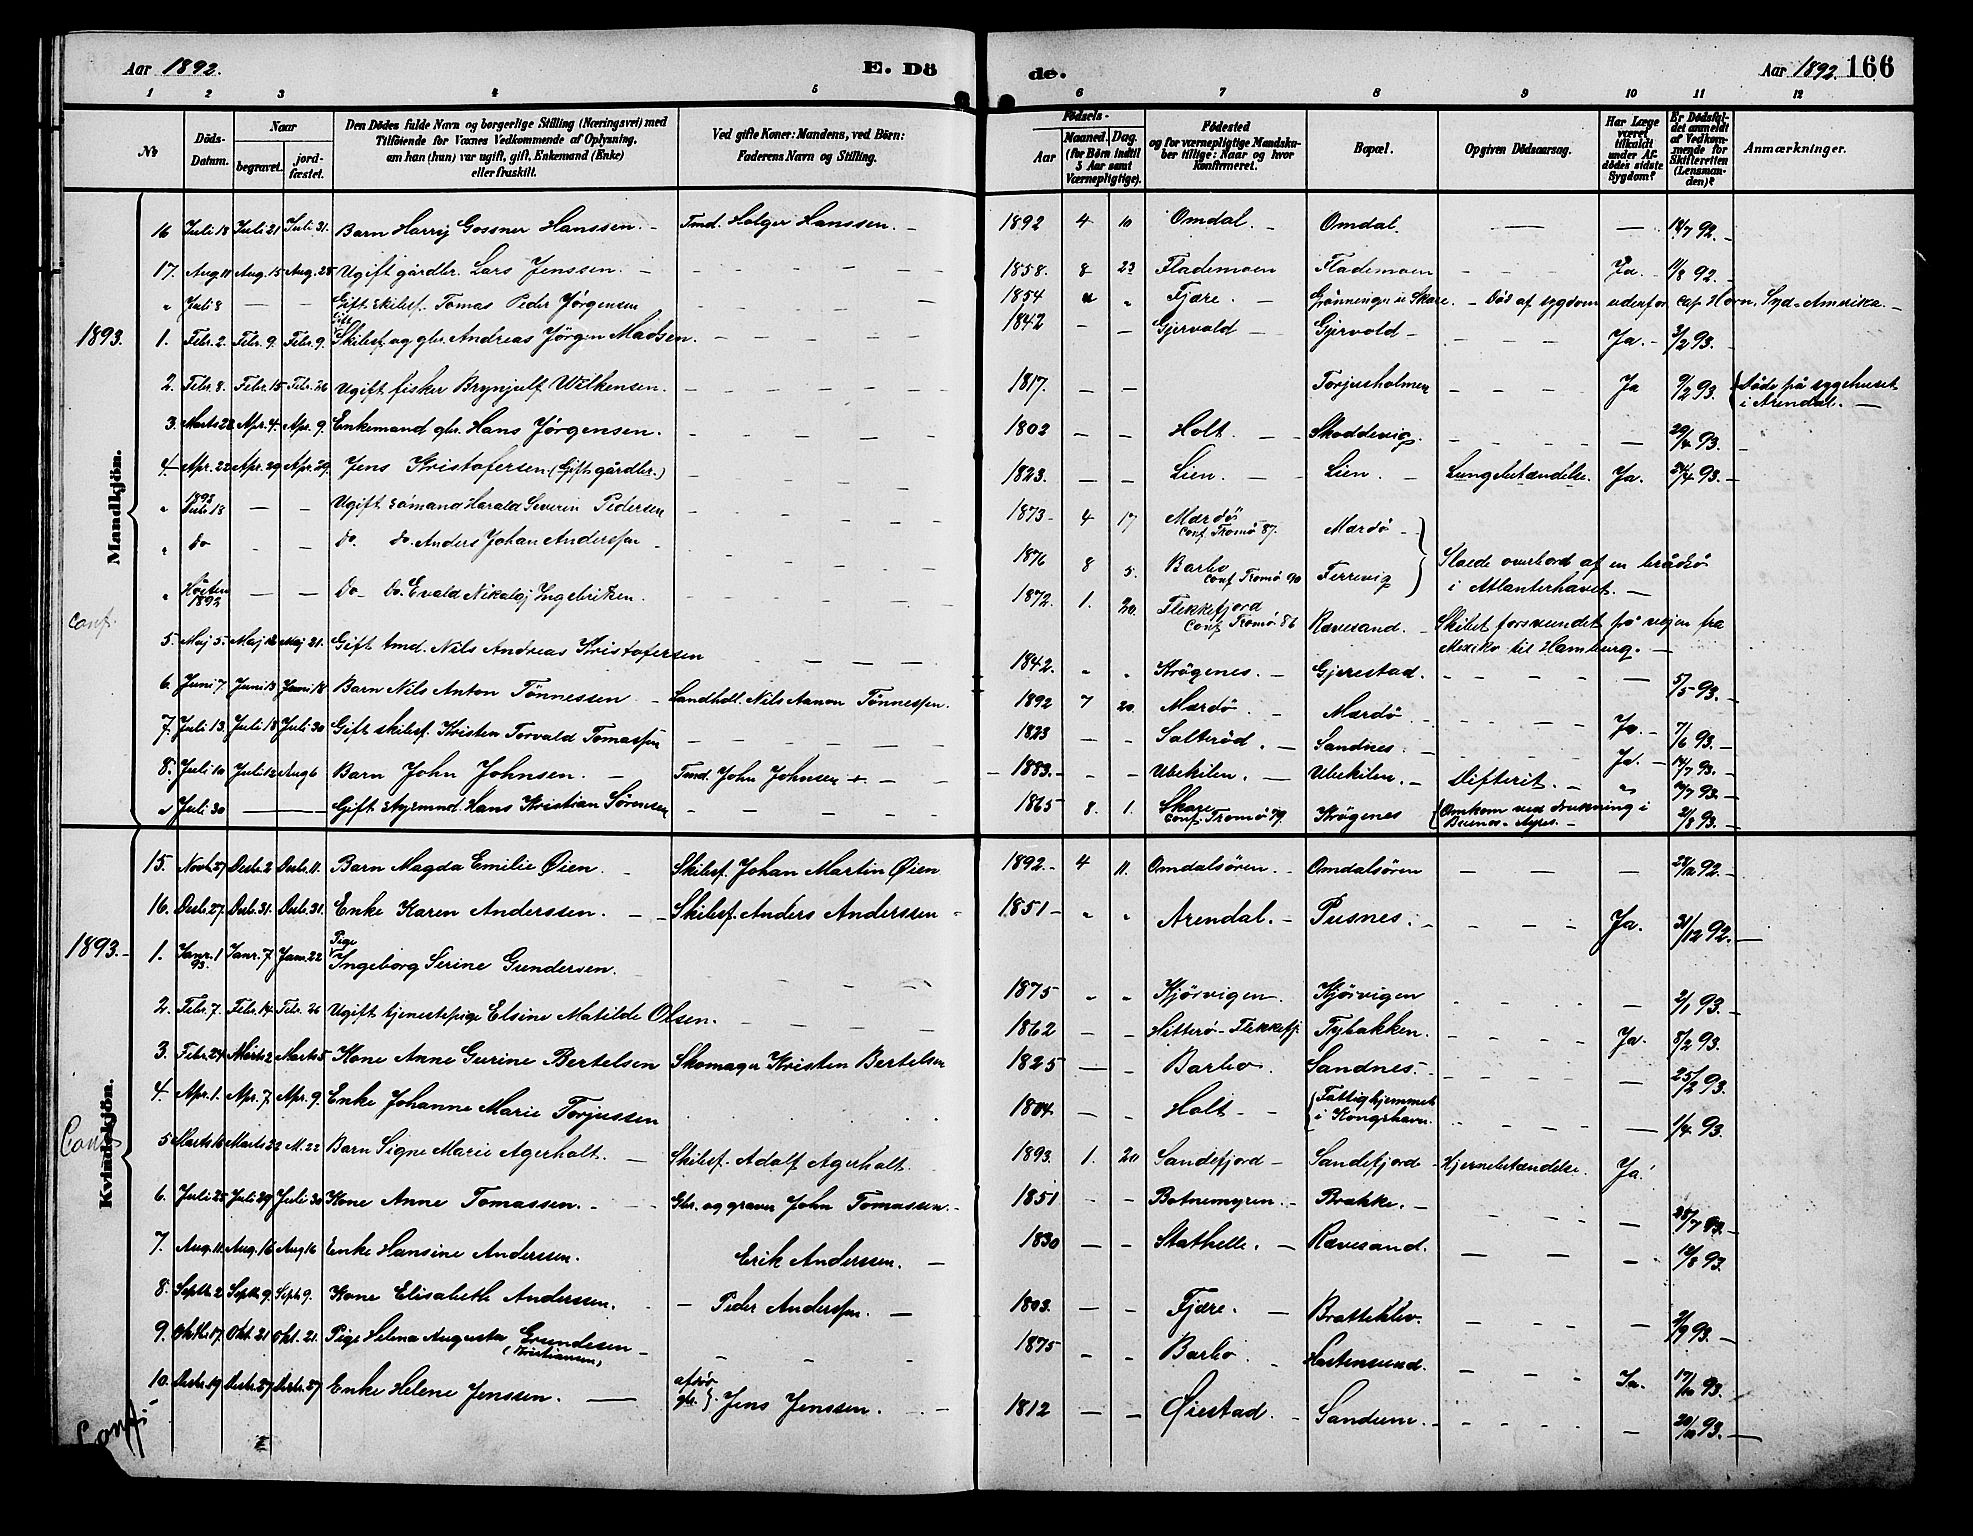 Aar 1892.
E. Dö
de.
Aar 1892. 166
1 2 3 4 5 6 7 8 9 10 11 12
No
Döds-Datum.
Naar
begravet.
jord-fæstet.
Den Dödes fulde Navn og borgerlige Stilling (Næringsvei) med
Tilföiende for Voxnes Vedkommende af Oplysning,
om han (hun) var ugift, gift, Enkemand (Enke)
eller fraskilt.
Ved gifte Koner: Mandens, ved Börn:
Faderens Navn og Stilling.
Födsels-
Aar
Maaned. Dag.
(for Börn indtil
5 Aar samt
Værnepligtige).
Födested
og for værnepligtige Mandska-
ber tillige: Naar og hvor
Konfirmeret.
Bopæl.
Opgiven Dödsaarsag.
Har Læge
været
tilkaldt
under Af-
dödes sidste
Sygdom?
Er Dödsfal-
det anmeldt
af Vedkom-
mende for
Skifteretten
(Lensman-
den)?
Anmærkninger.
Mandkjön.
16 Juli 18 Juli 21 Juli 31. Barn Harry Gossner Hanssen. - Tmd. Holger Hanssen. - 1892 4 10 Omdal. - Omdal. — — 18/7 92. -
17. Aug. 11 Aug. 15 Aug. 28 Ugift gårdbr. Lars Jenssen. - 1858. 8 23 Flademoen Flademoen - Ja. - 11/8 92. -
" Juli 8 — — Gift skibsf. Tomas Peder Jørgensen 1854 " " Fjære. - Skare. - Død af sygdom udenfor Cap Horn, Syd-Amerika. -
1893. 1. Febr. 2. Febr. 9. Febr. 9. Gift Skibsf. og gbr. Andreas Jörgen Madsen. 1842 - - Gjervold - Gjervold - Ja. - 3/2 93.
2. Febr. 8. Febr. 15 Febr. 26 Ugift fisker Brynjulf Wilkensen. 1817. - - Torjusholmen Ja 9/2 93. Døde på sygehuset
i Arendal. -
3. Marts 28 Apr. 4. Apr. 9. Enkemand gbr. Hans Jörgensen. 1802 — - Holt. - Skoddevig. — 93.
4. Apr. 22 Apr. 29 Apr. 29. Jens Kristofersen. (Gift gårdbr.) 1823. — - Lien. - Lien. - Lungebetændelse. Ja. 24/4 93. -
" 1892 13 - - Ugift sömand Harald Severin Pedersen 1873 - 4 17 Mærdö
conf. Tromö 87. Mærdö -
" Do - - Do. Do. Anders Johan Anderssen - 1876 8 5. Barbo
conf. Tromö 90 Ferrevig Sloede overbord af en brådsö
i Atlanterhavet. -
" Høsten
1892 — — Do - Do. Evald Nikolaj Ingebritsen. 1872. 1. 20. Flekkefjord
Conf. Tromö 86 Rævesand. - Skibet forsvundet på vejen fra
Mexiko til Hamburg. -
Conf.
5. Maj 5. Maj Maj 21. Gift tmd. Nils Andreas Kristofersen 1842. " " Krögenes. - Gjerestad. — 5/5 93. -
6. Juni 7. Juni 13 Juni 18 Barn Nils Anton Tönnessen - Landhdl. Nils Aanon Tönnessen. 1892 7 20. Mærdö. - Mærdö Ja. - 7/6 93. -
7. Juli 13. Juli 18 Juli 30 Gift skibsf. Kristen Torvald Tomassen 1823 — - Salteröd. - Sandnes. Ja. - 14/7 93. -
8. Juli 10 Juli 12 Aug 6 Barn John Johnsen. - Tmd. John Johnsen - - 1883. - - - Ubekilen. - Ubekilen. - Difterit. - " 93. -
" Juli 30 — — Gift styrmnd. Hans Kristian Sörensen 1865 8. 1. Skare
conf. Tromö 79. Krögenes Omkom ved drukning i
Buenos-Ayres. - 2/8 93. -
Kvindekjön.
15. Novb. 27 Decbr. 2 Decbr. 11. Barn Magda Emilie Øien. - Skibsf. Johan Martin Øien 1892. - 4 11. Omdalsören. - Omdalsören — — — 92. -
16. Decbr. 27 Decbr. 31. Decbr. 31. Enke Karen Anderssen. - - Skibsf. Anders Anderssen - 1851 - " " Arendal. - Pusnes. - Ja. 31/12 92. -
1893. - 1. Janr. 1
93. Janr. 7 Jan. 22 Pige
Ingeborg Serine Gundersen. 1875 " " Kjörvigen. Kjörvigen - — 2/1 93. -
2. Febr. 7. Febr. 14 Febr. 26 Ugift tjenestepige Elsine Matilde Olsen. 1862 — - Hitterö - Flekkefj. Tybakken. Ja. 8/2 93.
3. Febr. 24 Marts 2 Marts 5 Kone Anne Gurine Bertelsen Skomager Kristen Bertelsen 1825 — - Barbo. Sandnes. - — 25/2 93.
4. Apr. 1. Apr. 7. Apr. 9. Enke Johanne Marie Torjussen 1804 — - Holt - - Fattighjemmet
i Kongshavn. — 1/4 93.
Conf.
5. Marts 16 Marts 22 M. 22 Barn Signe Marie Agerholt. - Skibsf. Adolf Agerholt. 1893. 1. 20 Sandefjord - Sandefjord - Hjernebetændelse. Ja.
6. Juli 25 Juli 29 Juli 30 Kone Anne Tomassen. - Gbr. og graver John Tomassen. - 1851 - - Botnemyren. - Brække. - 28/7 93. -
7. Aug. 11. Aug. 16 Aug 16 Enke Hansine Anderssen. Erik Anderssen. - 1830 — - Stathelle. - Rævesand. - 12/8 93.
8. Septb. 2 Septb. 9. Septb 9. Kone Elisabeth Anderssen. - Peder Anderssen. - 1803. — - Fjære. - Bratteklev. - 2/9 93. -
9. Oktb. 17. Okt. 21 Okt. 21. Pige Helena Augusta Gundersen -
(Kristiansen) 1875 - - Barbo. - Hastensund. Ja. 17/10 93.
10. Decbr. 19 Decbr. 27 Decbr. 27 Enke Helene Jenssen. — afdøde
gbr. Jens Jenssen. - 1812 — - Øiestad. - Sandum. - 93. -
Conf.